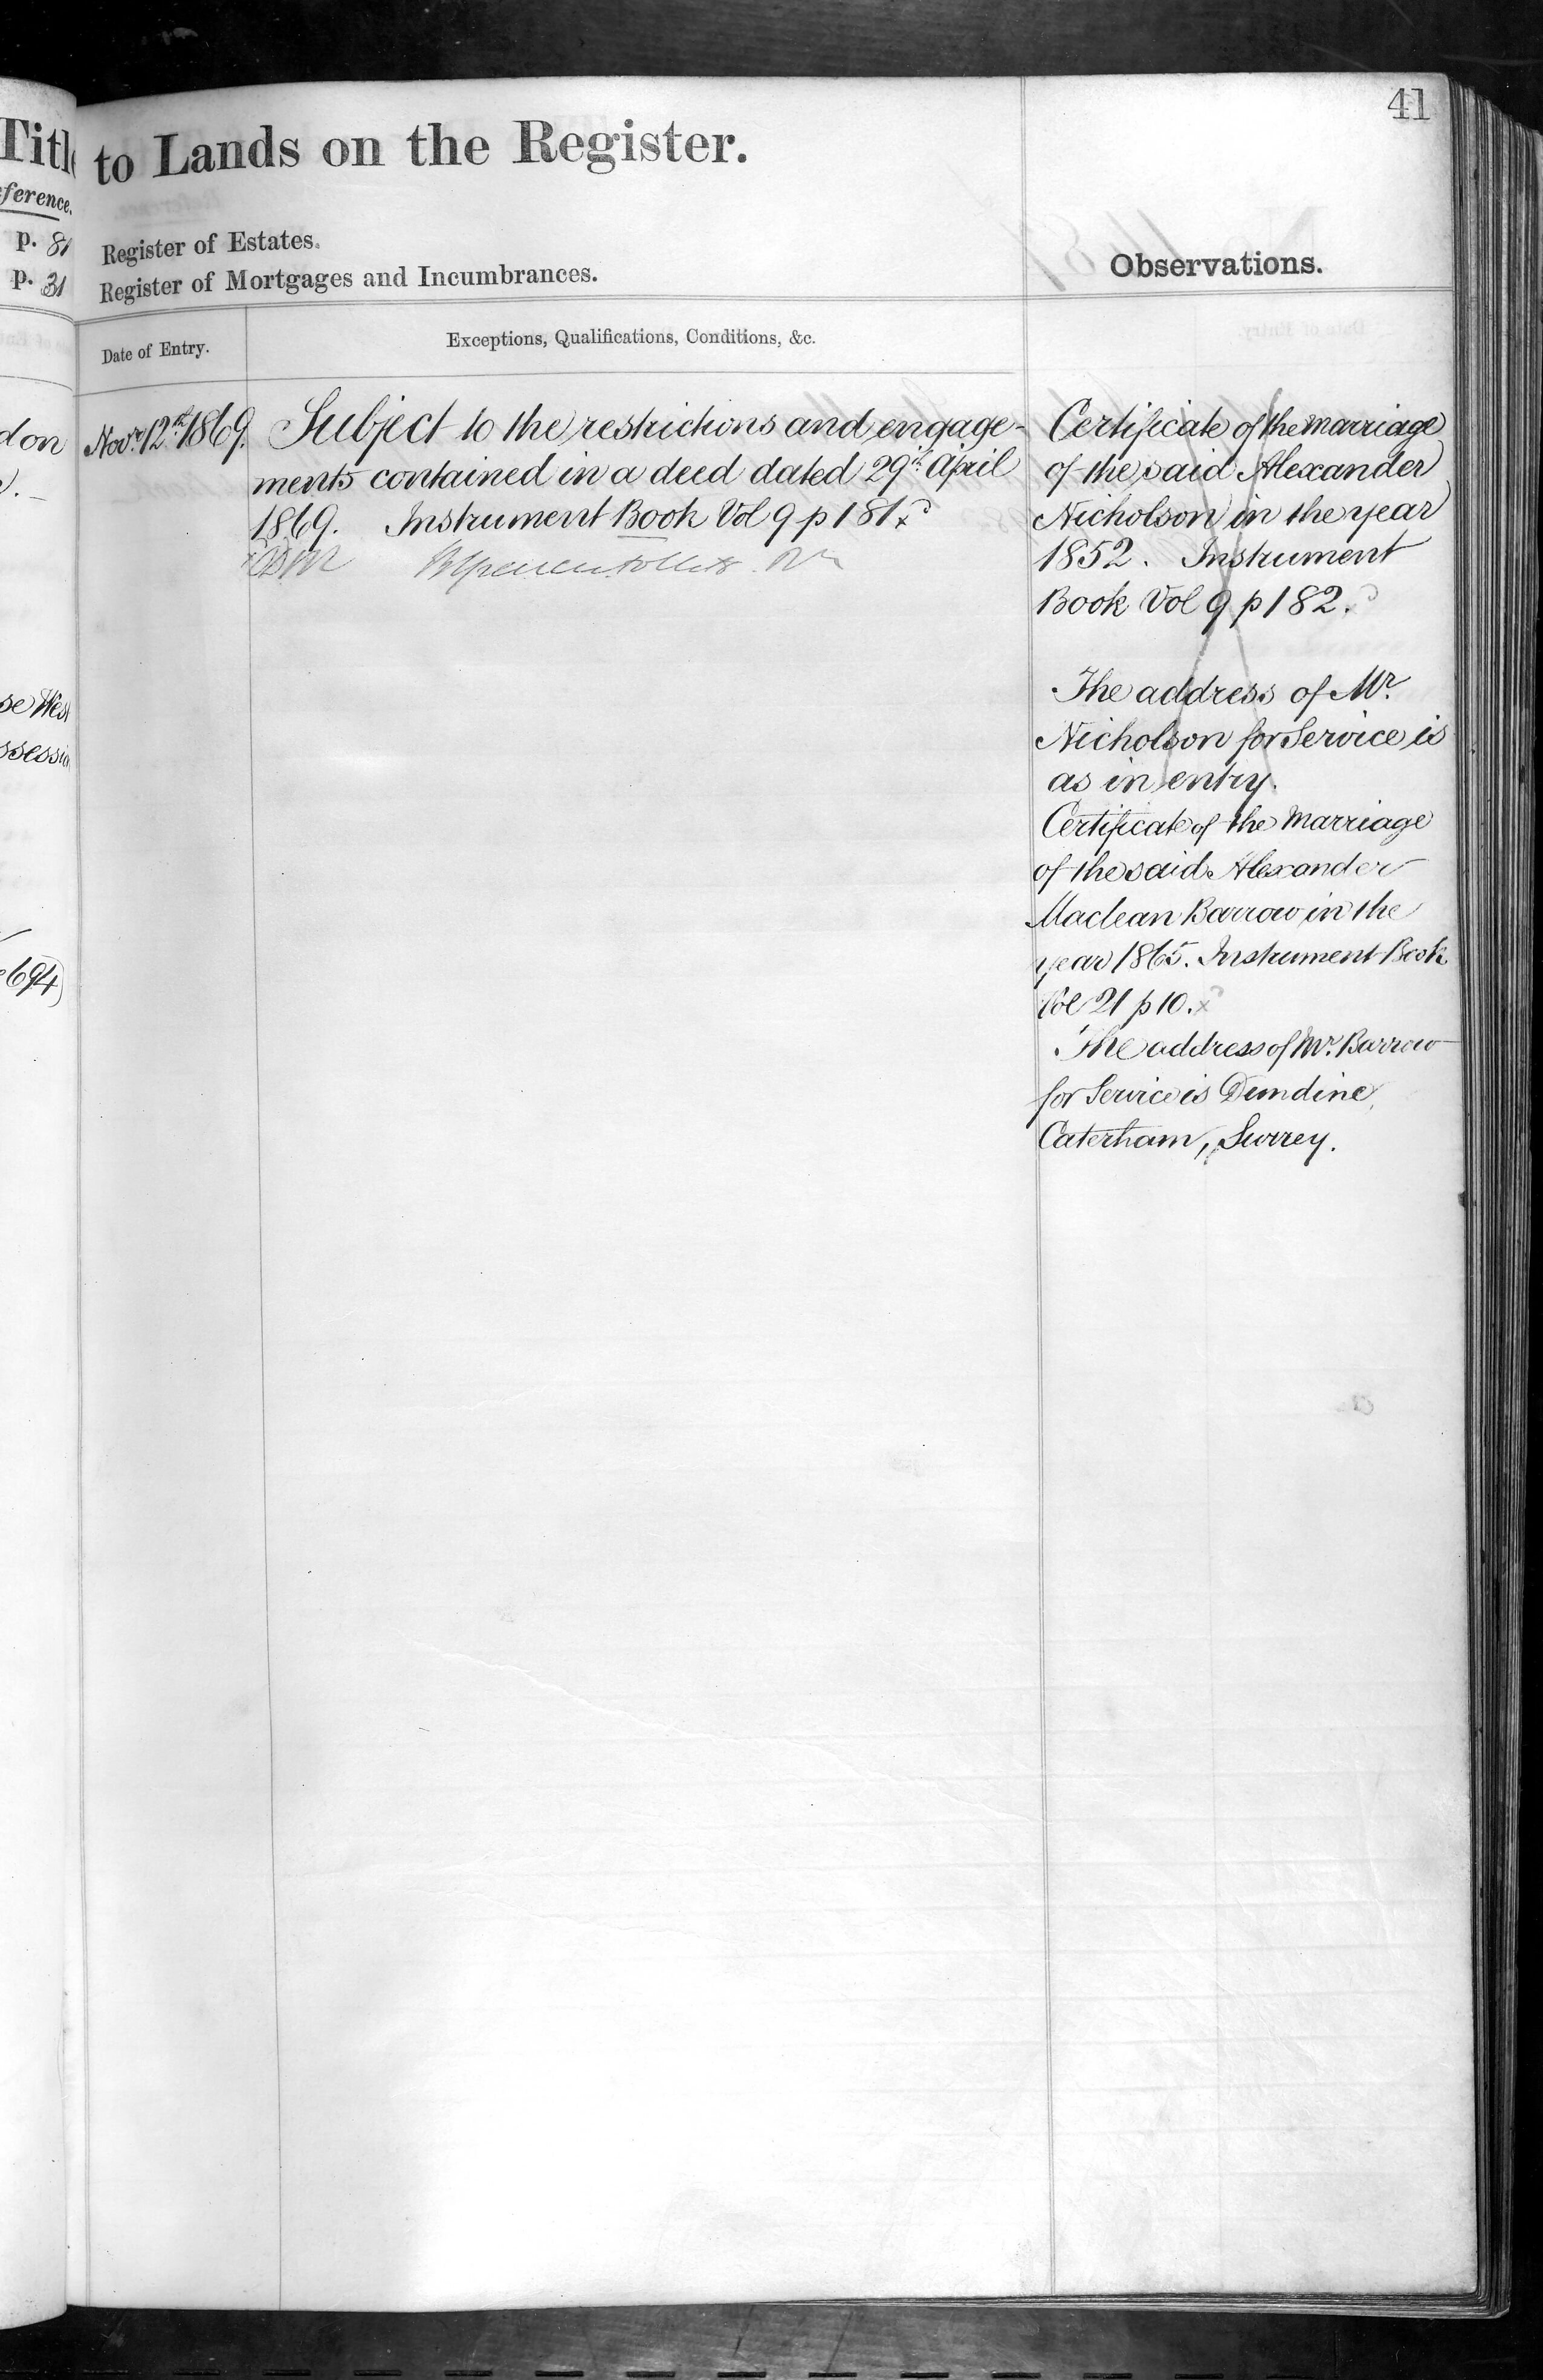 41
to Lands on the Register.
p. 81
Register of Estates.
p. 31
Register of Mortgages and Incumbrances.
Observations.
Date of Entry.
Exceptions, Qualifications, Conditions, &c.
Novr. 12th 1869.
Subject to the restrictions and engage-
ments contained in a deed dated 29th April
1869. Instrument Book Vol 9 p 181
Certificate of the marriage
of the said Alexander
Nicholson in the year
1852. Instrument
Book Vol 9 p 182.
The address of Mr.
Nicholson for Service is
as in entry.
Certificate of the Marriage
of the said Alexander
Maclean Barrow in the
year 1865. Instrument Book
Vol 21 p 10.
The address of Mr. Barrow
for Service is
Caterham, Surrey.
694)